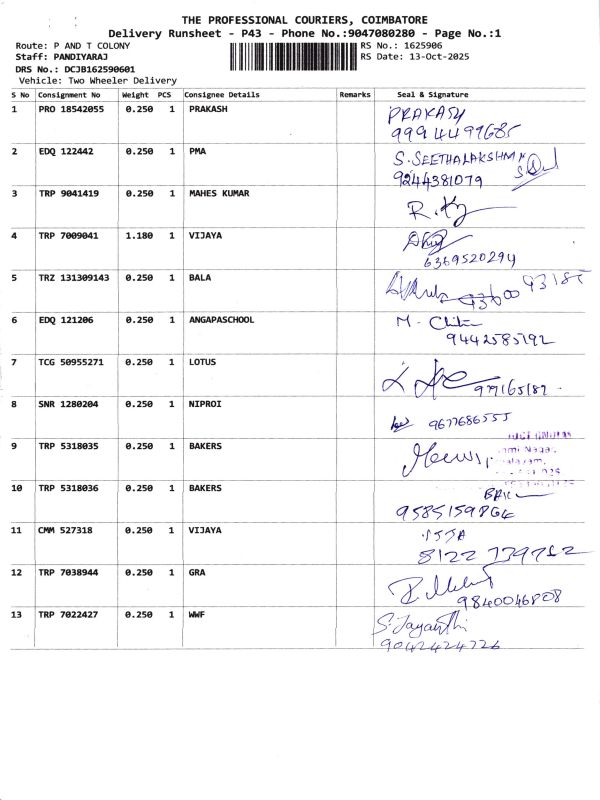 THE PROFESSIONAL COURIERS, COIMBATORE
Delivery Runsheet - P43 - Phone No.:9047080280 - Page No.:1
Route: P AND T COLONY
RS No.: 1625906
Staff: PANDIYARAJ
RS Date: 13-Oct-2025
DRS No.: DCJB162590601
Vehicle: Two Wheeler Delivery
S No Consignment No Weight PCS Consignee Details Remarks Seal & Signature
1 PRO 18542055 0.250 1 PRAKASH PRAKASH
9994499685
2 EDQ 122442 0.250 1 PMA S. SEETHALAKSHMI
9244381079
3 TRP 9041419 0.250 1 MAHES KUMAR
4 TRP 7009041 1.180 1 VIJAYA
6369520294
5 TRZ 131309143 0.250 1 BALA
6 EDQ 121206 0.250 1 ANGAPASCHOOL M. Chitra
9442585192
7 TCG 50955271 0.250 1 LOTUS
8 SNR 1280204 0.250 1 NIPROI 9677686555
9 TRP 5318035 0.250 1 BAKERS
10 TRP 5318036 0.250 1 BAKERS
9585159864
11 CMM 527318 0.250 1 VIJAYA
8122 739782
12 TRP 7038944 0.250 1 GRA
9840046808
13 TRP 7022427 0.250 1 WWF S. Jayanthi
9042424726